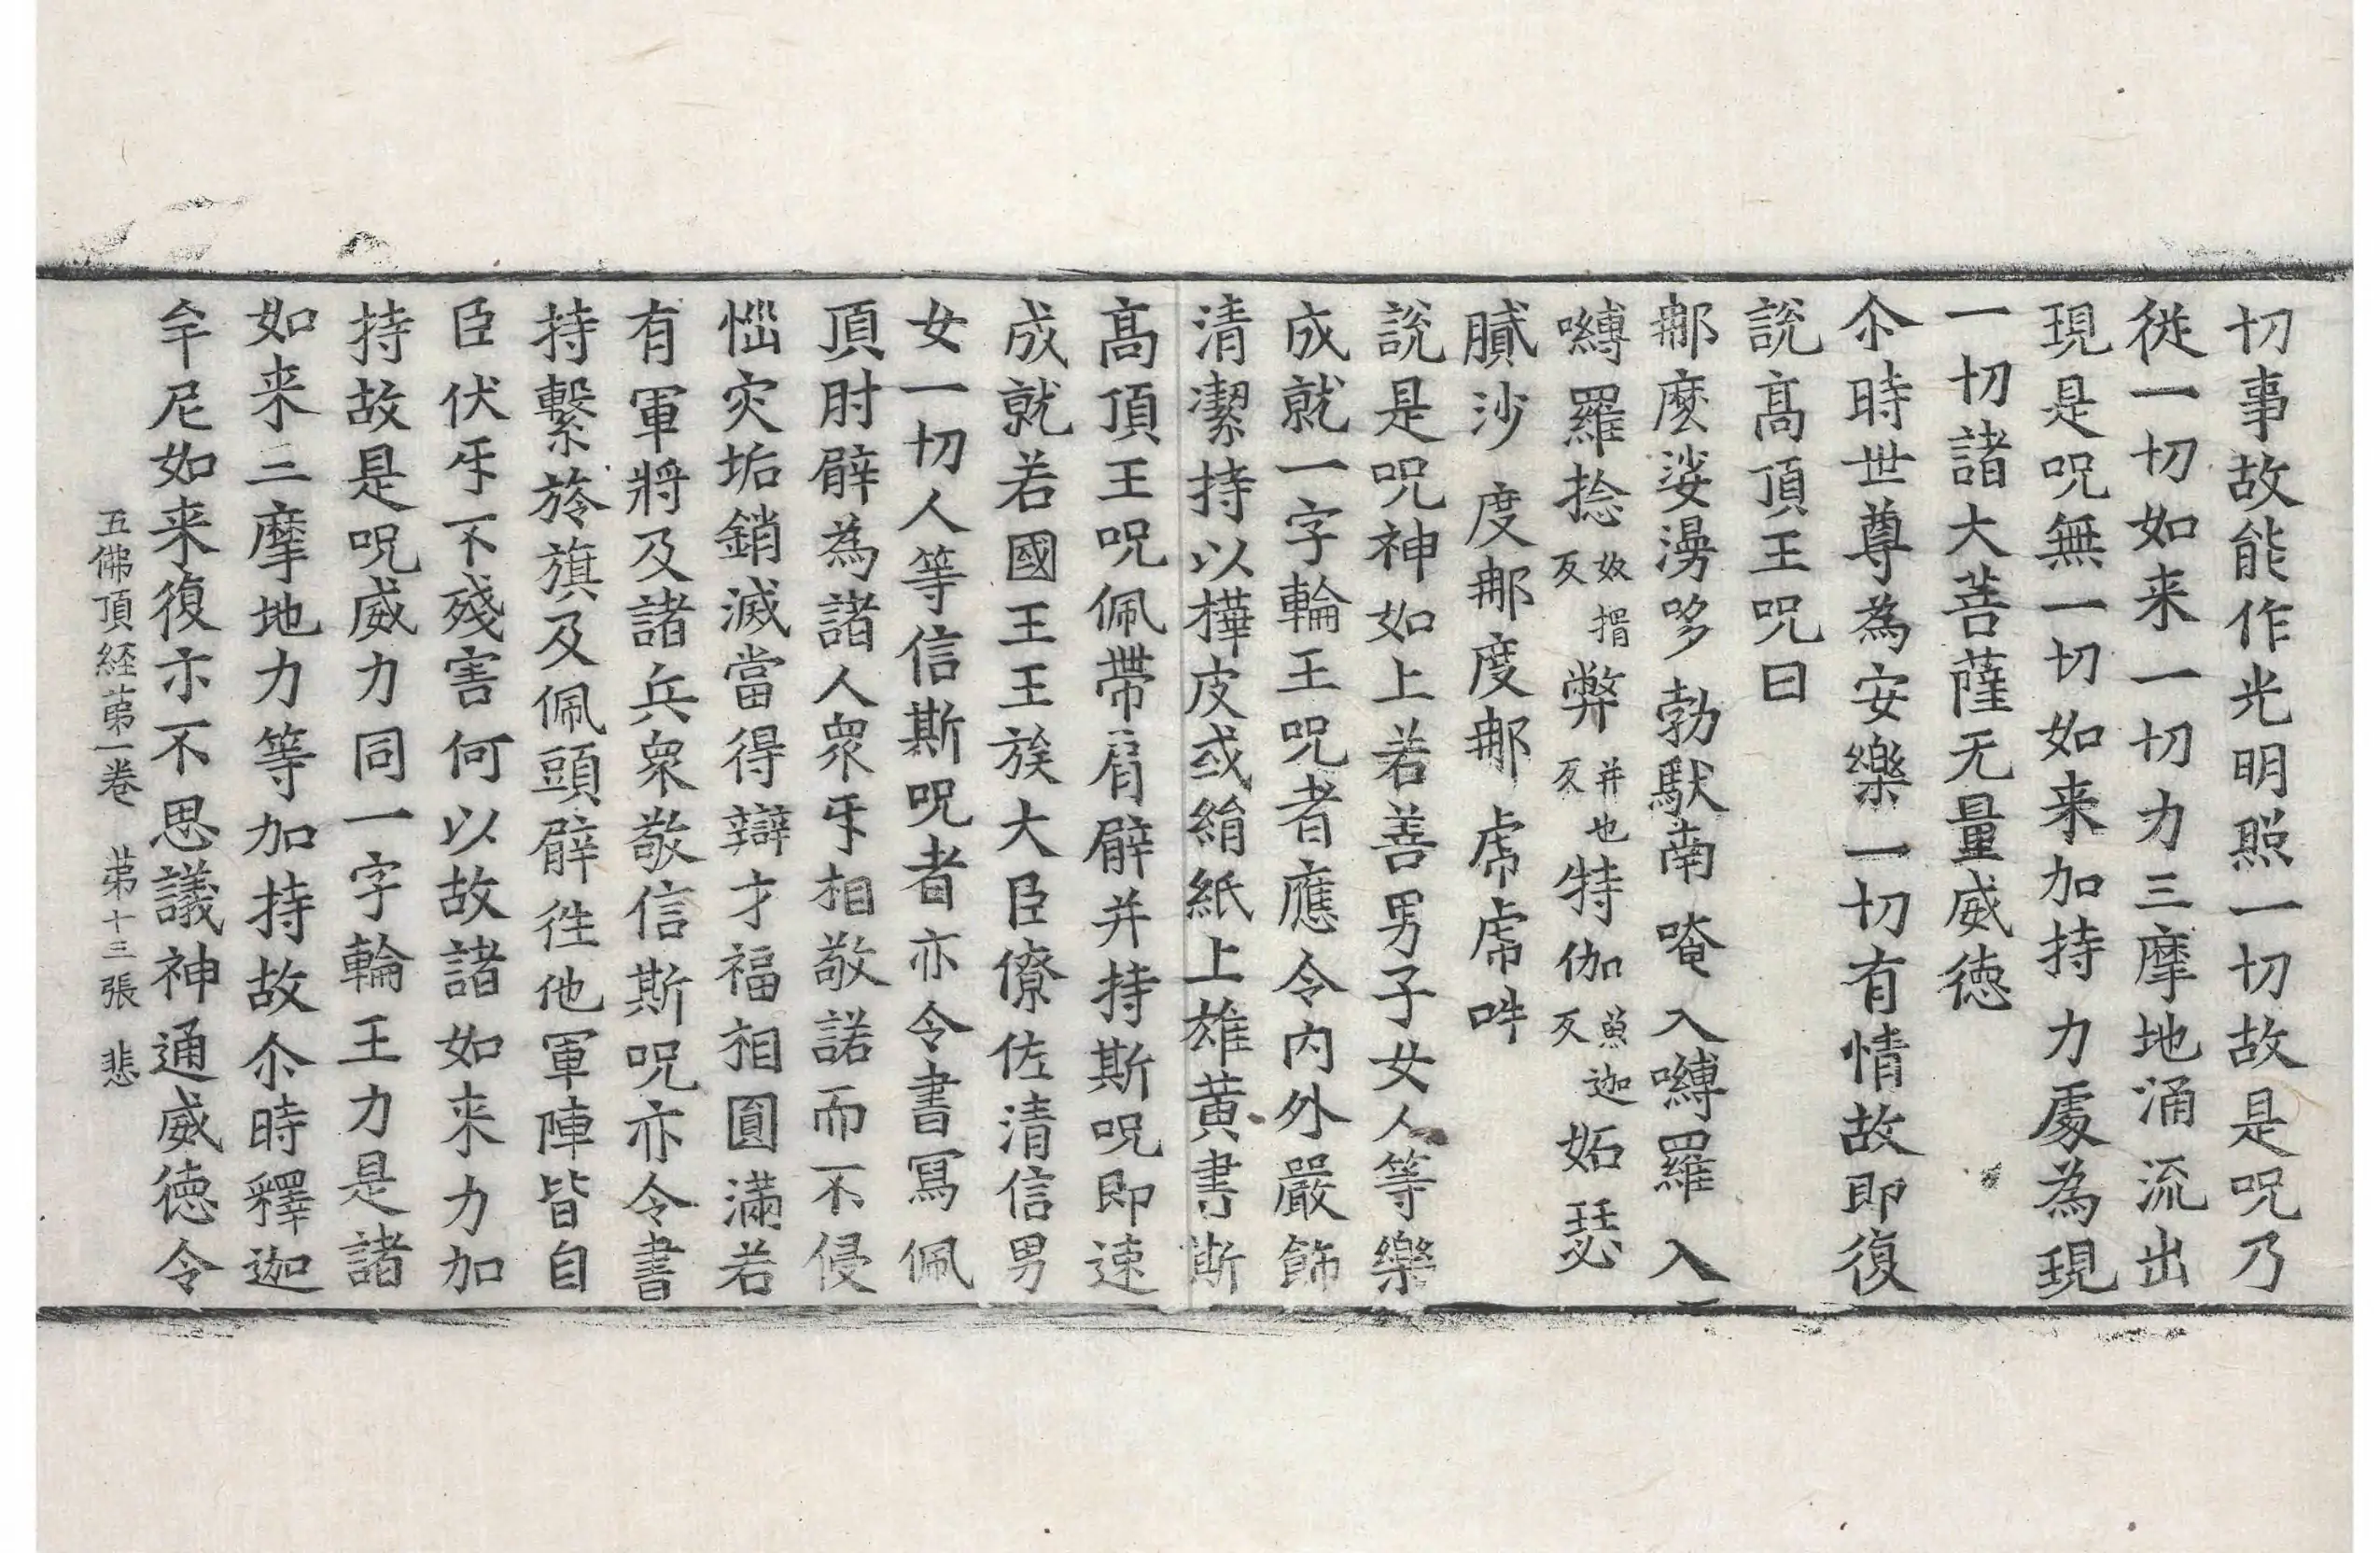 切事故能作光明照一切故是呪乃
從一切如来一切力三摩地涌流出
現是呪無一切如来加持力處為現
一切諸大菩薩无量威徳
尒時世尊為安樂一切有情故即復
說髙頂王呪曰
娜麼娑漫哆勃馱南唵入嚩羅入
嚩羅捻奴揖反弊并也反特伽魚迦反妬瑟
膩沙度娜度娜虎虎吽
說是呪神如上若善男子女人等樂
成就一字輪王呪者應令内外嚴飾
清潔持以樺皮或絹紙上雄黄書斯
髙頂王呪佩帶肩臂并持斯呪即速
成就若國王王族大臣僚佐清信男
女一切人等信斯呪者亦令書冩佩
頂肘臂為諸人衆㸦相敬諾而不侵
惱灾垢銷滅當得辯才福相圓滿若
有軍將及諸兵衆敬信斯呪亦令書
持繫於旗及佩頭臂徃他軍陣皆自
臣伏㸦不殘害何以故諸如来力加
持故是呪威力同一字輪王力是諸
如来三摩地力等加持故尒時釋迦
牟尼如来復示不思議神通威徳令
五佛頂経苐一卷　苐十三張　悲